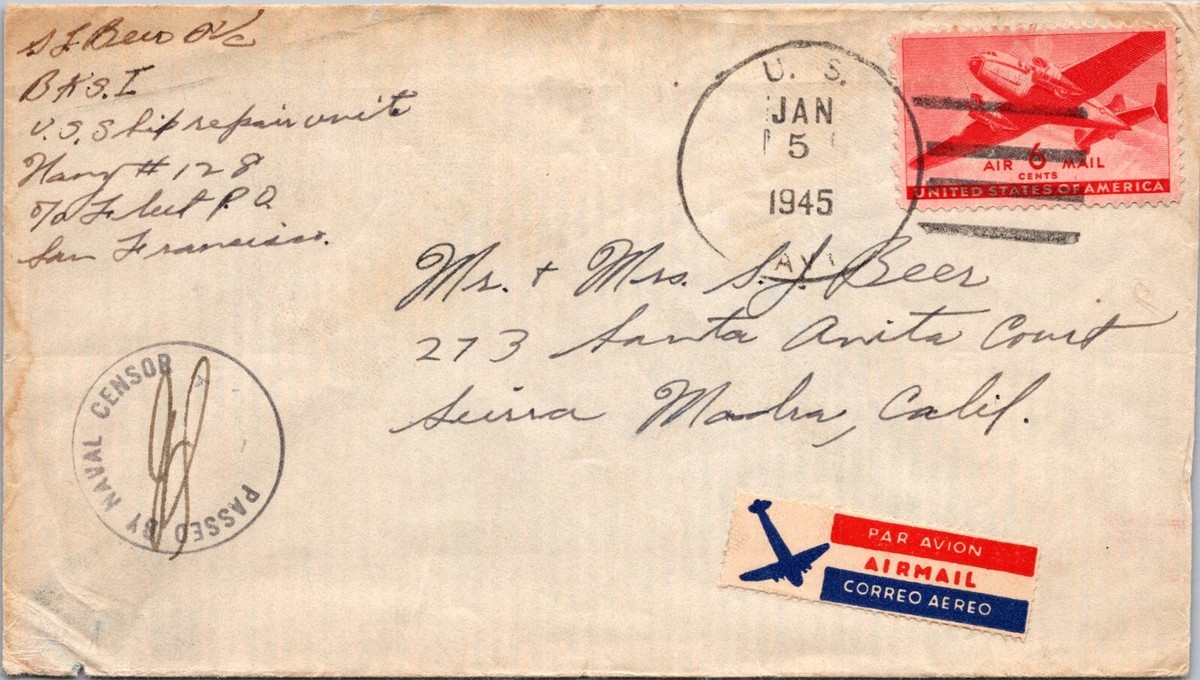 S J Beer
BKS. I
U.S. Ship repair unit
Navy # 128
c/o Fleet P.O.
San Francisco.
U. S.
JAN
5
1945
NAVY
AIR 6 MAIL
CENTS
UNITED STATES OF AMERICA
Mr. + Mrs. S. J. Beer
273 Santa Anita Court
Sierra Madre, Calif.
PASSED BY NAVAL CENSOR
PAR AVION
AIRMAIL
CORREO AEREO